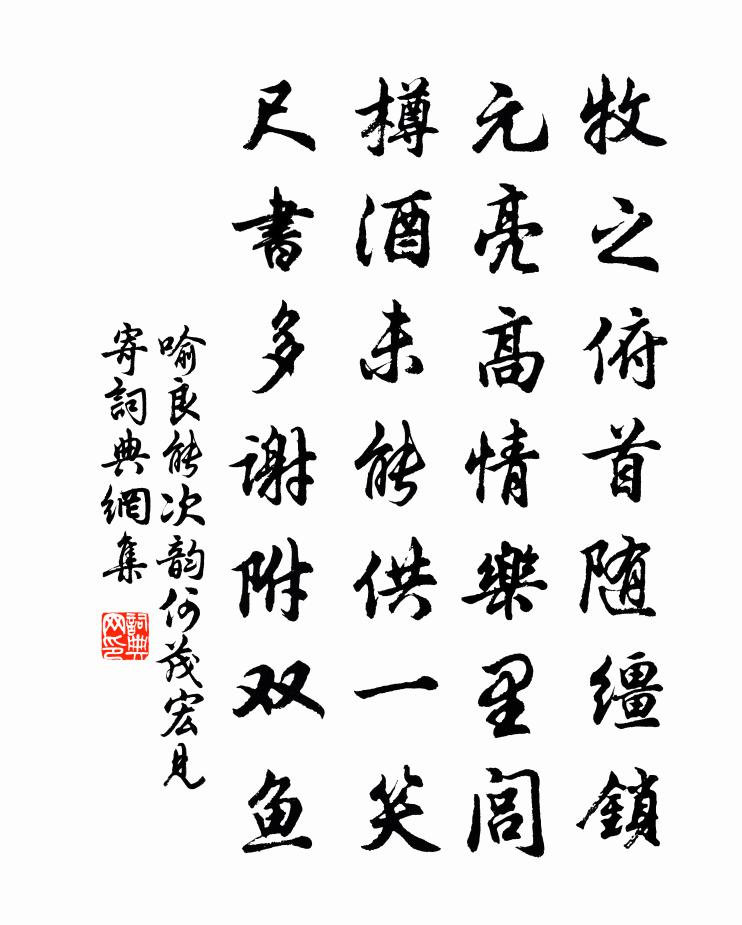 牧之俯首随缰鎖
元亮高情樂里閭
樽酒未能供一笑
尺書多谢附双鱼
喻良能次韵何茂宏見
寄詞典網集
詞典网印